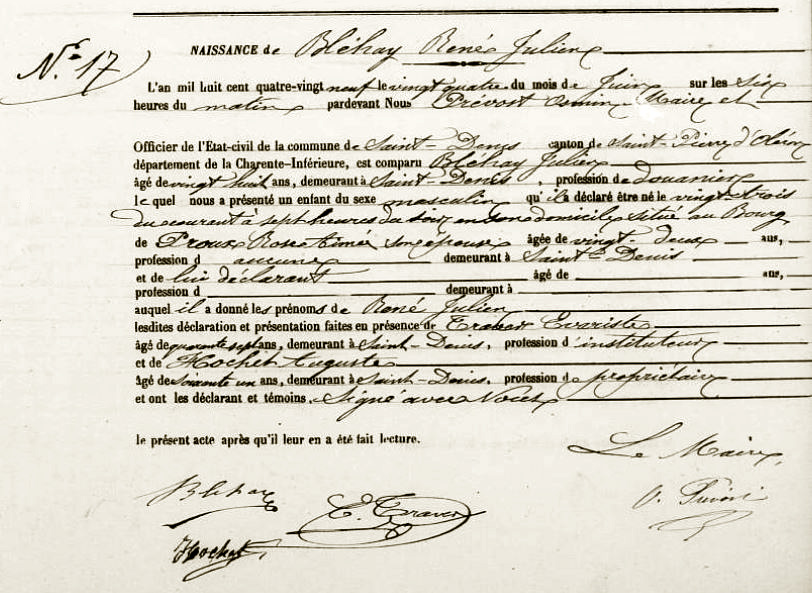 N.º 17
NAISSANCE de Bléhay René Julien
L'an mil huit cent quatre-vingt neuf le vingt quatre du mois de Juin sur les six
heures du matin pardevant Nous Prévost Osmin Maire et
Officier de l'Etat-civil de la commune de Saint-Denis canton de Saint-Pierre d'Oléron
département de la Charente-Inférieure, est comparu Bléhay Julien
âgé de vingt huit ans, demeurant à Saint-Denis, profession de douanier
le quel nous a présenté un enfant du sexe masculin qu'il a déclaré être né le vingt-trois
du courant à sept heures du soir en son domicile situé au Bourg
de Proux Rose Aimée son épouse âgée de vingt-deux ans,
profession d aucune demeurant à Saint-Denis
et de lui déclarant âgé de ans,
profession d demeurant à
auquel il a donné les prénoms de René Julien
lesdites déclaration et présentation faites en présence de Traver Evariste
âgé de quarante sept ans, demeurant à Saint-Denis, profession d'instituteur
et de Hochet Auguste
âgé de soixante un ans, demeurant à Saint-Denis, profession de propriétaire
et ont les déclarant et témoins, Signé avec Nous
le présent acte après qu'il leur en a été fait lecture.
Le Maire,
Bléhay E. Traver O. Prévost
Hochet